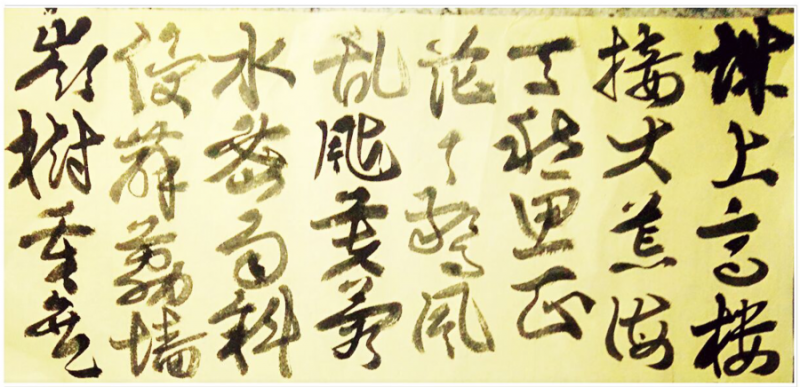 城上高楼
接大荒海
天愁思正
茫茫驚风
乱飐芙蓉
水密雨斜
侵薜荔墙
岭樹重遮